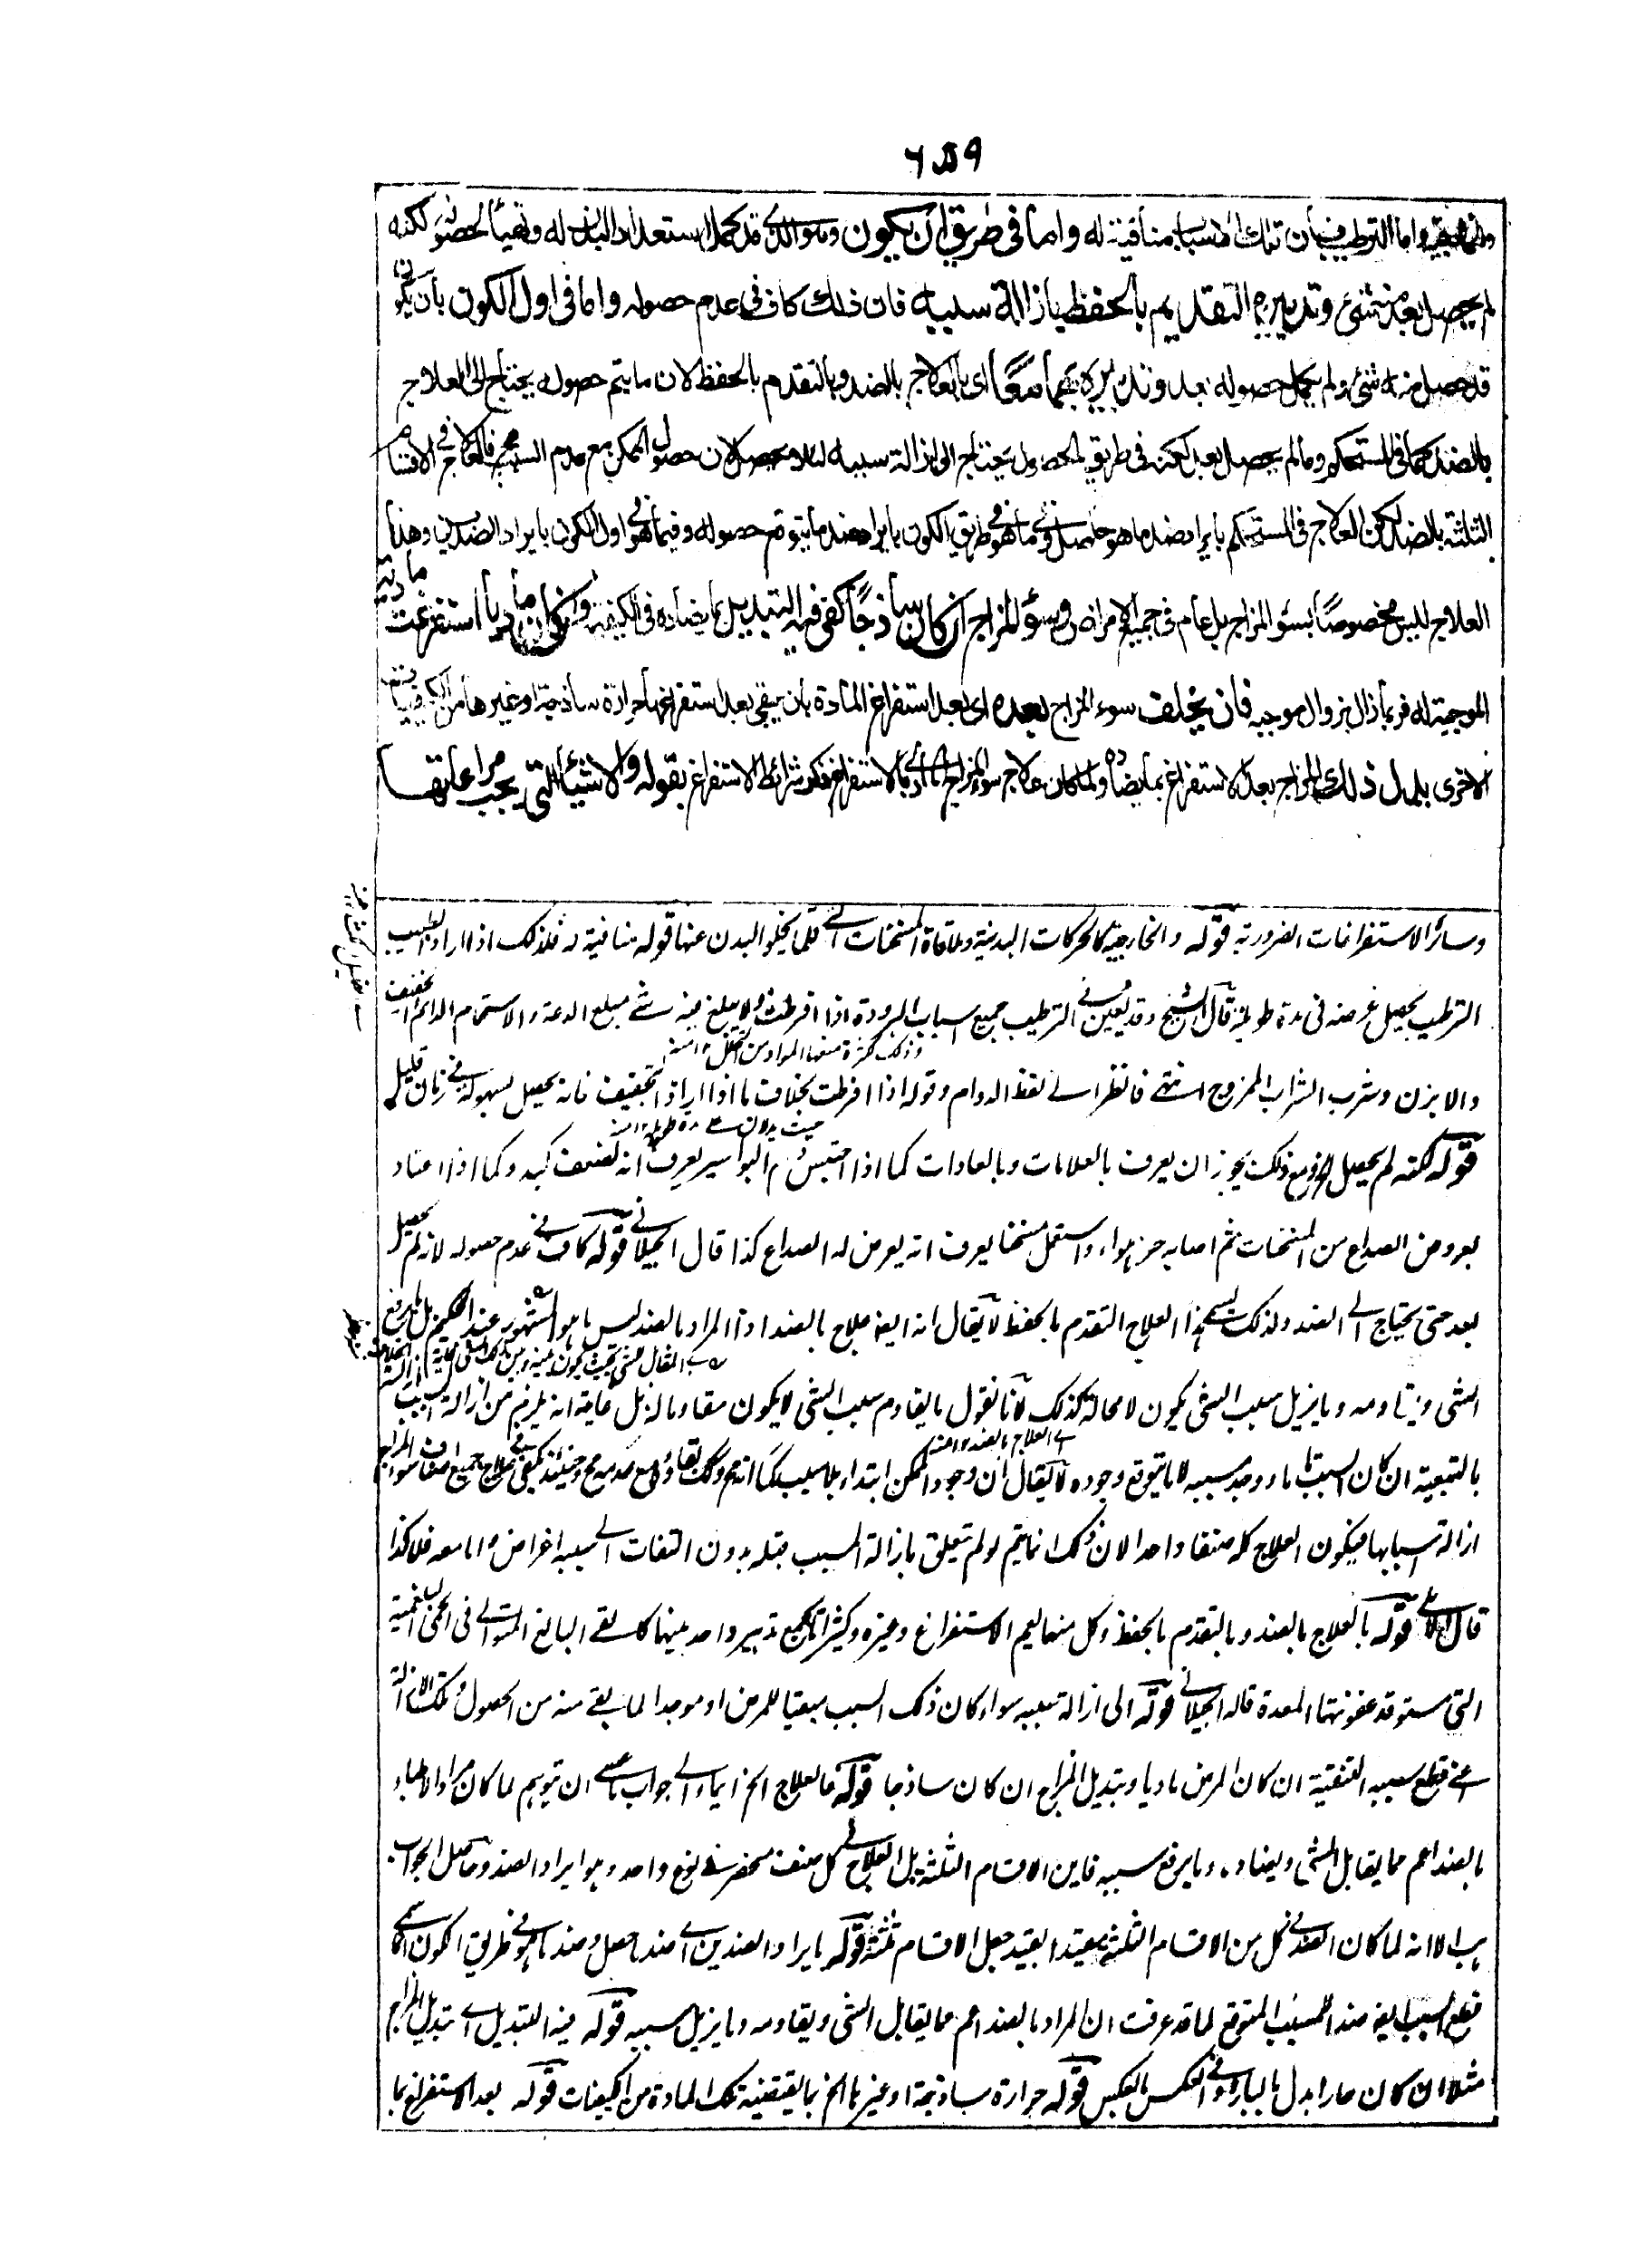 ٦٥٩
واما الترطيب فبان تلك الاسباب منافية له واما فى طريق ان يكون وهو الذى قد كمل استعداد البدن له وتهيأ لحصوله لكنه
لم يحصل بعد منه شئ وتدبيره التقديم بالحفظ بازالة سببه فان ذلك كاف فى عدم حصوله واما فى اول الكون بان يكون
قد حصل منه شئ ولم يكمل حصوله بعد وتدبيره بهما معًا اى بالعلاج بالضد وبالتقدم بالحفظ لان ما يتم حصوله يحتاج الى العلاج
بالضد كما فى المستحكم وما لم يحصل بعد لكنه فى طريق الحصول يحتاج الى ازالة سببه لئلا يحصل لان حصول الممكن مع عدم السبب مح فالعلاج فى الاقسام
الثلثة بالضد لكن العلاج فى المستحكم بايراد ضد ما هو حاصل وفى ما هو فى طريق الكون بايراد ضد ما يتوقع حصوله وفيما هو فى اول الكون بايراد الضدين وهذا
العلاج ليس مخصوصًا بسوء المزاج بل عام فى جميع الامراض وسوء المزاج ان كان ساذجًا كفى فيه التبديل بما يضاده فى الكيفية وان كان ماديا استفرغت مادته
الموجبة له فربما زال بزوال موجبه فان تخلف سوء المزاج بعده اى بعد استفراغ المادة بان يبقى بعد استفراغها حرارة ساذجة او غيرها من الكيفيات
الاخرى بدل ذلك المزاج بعد الاستفراغ بما يضاده ولما كان علاج سوء المزاج المادى بالاستفراغ ذكر شرائط الاستفراغ بقوله والاشياء التى يجب مراعاتها
وسائر الاستفراغات الضرورية قوله والخارجية كالحركات البدنية وملاقاة المسخنات التى قلما يخلو البدن عنها قوله منافية له فلذلك اذا اراد الطبيب
الترطيب يحصل غرضه فى مدة طويلة قال الشيخ وقد يعين فى الترطيب جميع اسباب البرودة اذا افرطت ولا يبلغ فيه شئ مبلغ الدعة والاستحمام الدائم الخفيف
والابزن وشرب الشراب الممزوج انتهى فانظر الى لفظ الدوام وقوله اذا افرطت بخلاف ما اذا اراد التجفيف فانه يحصل بسهولة فى زمان قليل
قوله لكنه لم يحصل الخ ومع ذلك يجوز ان يعرف بالعلامات وبالعادات كما اذا احتبس دم البواسير يعرف انه لضعف كبد وكما اذا اعتاد
بعروض الصداع من المسخنات ثم اصابه حر هواء واستعمل مسخنا يعرف انه يعرض له الصداع كذا قال الجيلانى قوله كاف فى عدم حصوله لانه لم يحصل
بعد حتى يحتاج الى الضد ولذلك يسمى هذا العلاج التقدم بالحفظ لا يقال انه ايضا علاج بالضد اذ المراد بالضد ليس ما هو المشهور عند الحكيم بل ما يرفع
الشئ ويقاومه وما يزيل سبب الشئ يكون لا محالة كذلك لانا نقول ما يقاوم سبب الشئ لا يكون مقاوما له بل غايته انه يلزم من ازالة السبب
بالتبعية ان كان السبب تاما ووجد مسببه لا ما يتوقع وجوده لا يقال ان وجود الممكن ابتداء بلا سبب كما انه مح وكذلك بقاؤه مع عدمه مح وحينئذ يكفى فى علاج جميع اصناف سوء المزاج
ازالة اسبابها فيكون العلاج كله صنفا واحدا لان ذلك انما يتم لو لم يتعلق بازالة المسبب قبله بدون التفات الى سببه اغراض واما معه فلا كذا
قال الآملى قوله بالعلاج بالضد وبالتقدم بالحفظ وكل منهما يعم الاستفراغ وغيره وكثيرا ما يجمع تدبير واحد بينهما كالقئ البالغ المتوالى فى الحمى البلغمية
التى مستوقد عفونتها المعدة قاله الجيلانى قوله الى ازالة سببه سواء كان ذلك السبب مبقيا للمرض او موجدا لما بقى منه من الحصول وتلك الازالة
اعنى قطع سببه التنقية ان كان المرض ماديا وتبديل المزاج ان كان ساذجا قوله فالعلاج الخ ايماء الى جواب ما عسى ان يتوهم لما كان مراد الاطباء
بالضد اعم مما يقابل الشئ ويضاده وما يرفع سببه فاين الاقسام الثلثة بل العلاج فى كل صنف منحصر فى نوع واحد وهو ايراد الضد وحاصل الجواب
هب الا انه لما كان الضد فى كل من الاقسام الثلثة مقيدا بقيد جعل الاقسام ثلثة قوله بايراد الضدين اى ضد ما حصل وضد ما هو فى طريق الكون اى
قطع السبب ايضا ضد المسبب المتوقع لما قد عرفت ان المراد بالضد اعم مما يقابل الشئ ويقاومه وما يزيل سببه قوله فيه التبديل اى تبديل المزاج
مثلا ان كان حارا بدل بالبارد وفى العكس بالعكس قوله حرارة ساذجة او غيرها الخ بما يقتضيه تلك المادة من الكيفيات قوله بعد الاستفراغ بما